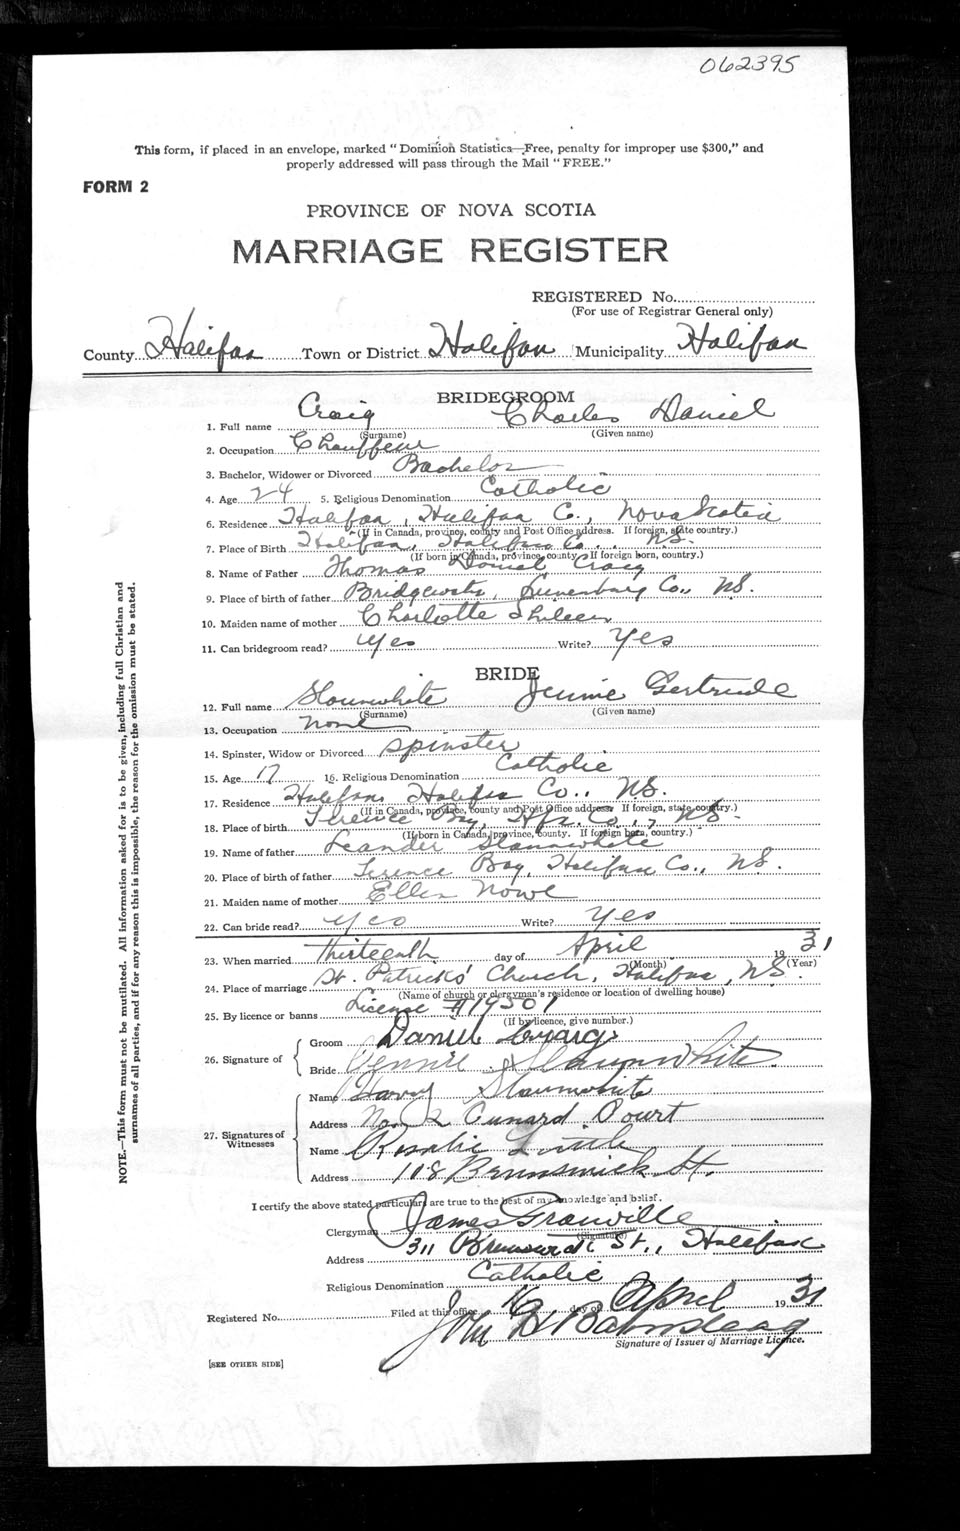 062395
This form, if placed in an envelope, marked "Dominion Statistics—Free, penalty for improper use $300," and
properly addressed will pass through the Mail "FREE."
FORM 2
PROVINCE OF NOVA SCOTIA
MARRIAGE REGISTER
REGISTERED No.
(For use of Registrar General only)
County Halifax Town or District Halifax Municipality Halifax
BRIDEGROOM
1. Full name Craig Charles Daniel
(Surname) (Given name)
2. Occupation Chauffeur
3. Bachelor, Widower or Divorced Bachelor
4. Age 24 5. Religious Denomination Catholic
6. Residence Halifax, Halifax Co., Nova Scotia
(If in Canada, province, county and Post Office address. If foreign, state country.)
7. Place of Birth Halifax, Halifax Co., N.S.
(If born in Canada, province, county. If foreign born, country.)
8. Name of Father Thomas Daniel Craig
9. Place of birth of father Bridgewater, Lunenburg Co., N.S.
10. Maiden name of mother Charlotte
11. Can bridegroom read? Yes Write? Yes
BRIDE
12. Full name Slaunwhite Jennie Gertrude
(Surname) (Given name)
13. Occupation none
14. Spinster, Widow or Divorced Spinster
15. Age 17 16. Religious Denomination Catholic
17. Residence Halifax, Halifax Co., N.S.
(If in Canada, province, county and Post Office address. If foreign, state country.)
18. Place of birth Terence Bay, Hfx. Co., N.S.
(If born in Canada, province, county. If foreign born, country.)
19. Name of father Leander Slaunwhite
20. Place of birth of father Terence Bay, Halifax Co., N.S.
21. Maiden name of mother Ellen Nowe
22. Can bride read? Yes Write? Yes
23. When married thirteenth day of April 1931
(Month) (Year)
24. Place of marriage St. Patricks' Church, Halifax, N.S.
(Name of church or clergyman's residence or location of dwelling house)
25. By licence or banns License #19501
(If by licence, give number.)
26. Signature of
Groom Daniel Craig
Bride Jennie Slaunwhite
27. Signatures of Witnesses
Name Harvy Slaunwhite
Address No. 2 Cunard Court
Name Rosalie Little
Address 118 Brunswick St.
I certify the above stated particulars are true to the best of my knowledge and belief.
Clergyman James Granville
(Signature)
Address 311 Brunswick St., Halifax
Religious Denomination Catholic
Registered No. Filed at this office 16 day of April 1931
John B.
Signature of Issuer of Marriage Licence.
[SEE OTHER SIDE]
NOTE.—This form must not be mutilated. All information asked for is to be given, including full Christian and
surnames of all parties, and if for any reason this is impossible, the reason for the omission must be stated.